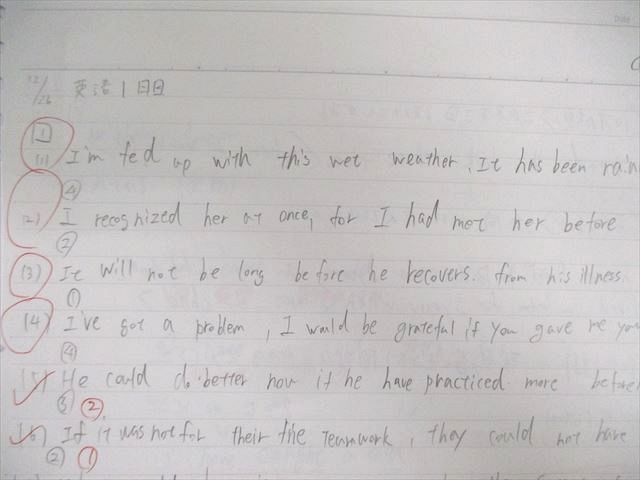 12/26 英語1日目
1
(1) I'm fed up with this wet weather. It has been rain
④
(2) I recognized her at once, for I had met her before
②
(3) It will not be long before he recovers from his illness.
①
(4) I've got a problem, I would be grateful if you gave me you
④
(5) He could do better now if he have practiced more before
③ ②
(6) If it was not for their the teamwork, they could not have
② ①